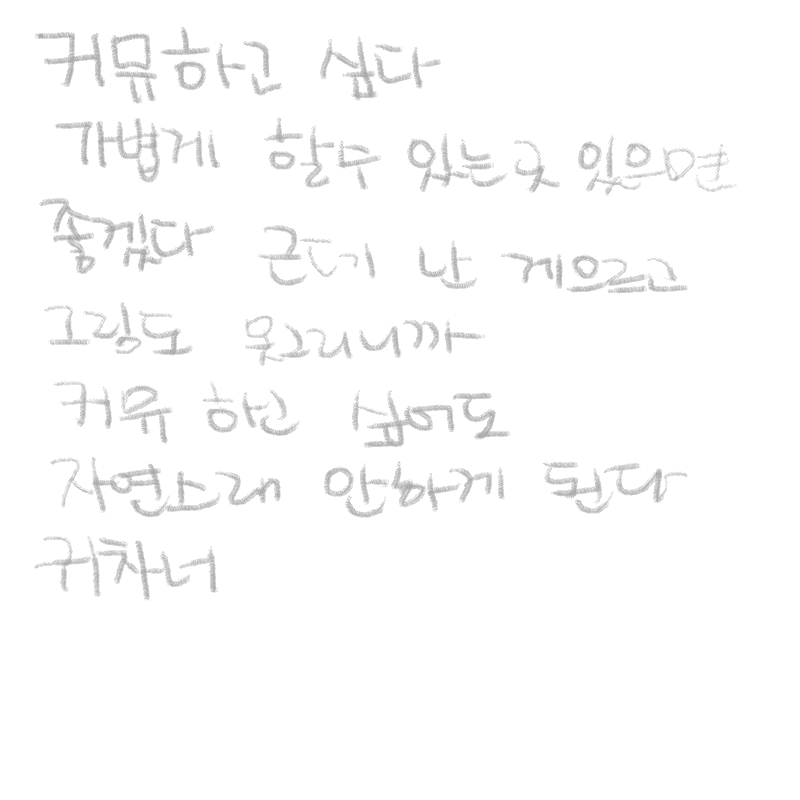 커뮤하고 싶다
가볍게 할수 있는곳 있으면
좋겠다 근데 난 게으르고
그림도 못그리니까
커뮤 하고 싶어도
자연스래 안하게 된다
귀차너